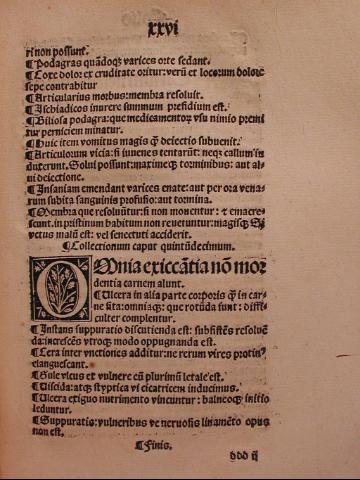 xxvi
ri non possunt.
¶Podagras quãdoqȝ varices orte sedant.
¶Coxe dolor ex cruditate oritur: verũ et locorum dolore
sepe contrabitur
¶Articularius morbus: membra resoluit.
¶Ischiadicos inurere summum presidium est.
¶Biliosa podagra: que medicamentorȝ vsu nimio premi
tur perniciem minatur.
¶Huic item vomitus magis q̃ deiectio subuenit.
¶Articulorum vicia: si iuuenes tentarũt: neqȝ callum in
duxerunt. Solui possunt: maximeqȝ torminibus: aut al-
ui deiectione.
¶Insaniam emendant varices enate: aut per ora vena-
rum subita sanguinis profusio: aut tormina.
¶Membra que resoluũtur: si non mouentur: ⁊ emacre-
scunt. in pristinum habitum non reuertuntur: magisqȝ Si
vetus malũ est: vel senectuti acciderit.
¶Collectionum caput quintũdecimum.
OMnia exiccãtia nõ mor
dentia carnem alunt.
¶Ulcera in alia parte corporis q̃ in car-
ne sita: omniaqȝ que rotũda sunt: diffi-
culter complentur.
¶Instans suppuratio discutienda est: subsistẽs resoluẽ
da: increscẽs vtroqȝ modo oppugnanda est.
¶Cera inter vnctiones additur: ne rerum vires protinꝰ
elanguescant.
¶Sule vlcus et vulnere cũ plurimũ letale est.
¶Uiscida: atqȝ styptica vi cicatricem inducimus.
¶Ulcera exiguo nutrimento vincuntur: balneoqȝ initio
leduntur.
¶Suppuratis: vulneribus ve neruosis linamẽto opus
non est.
¶Finis.
ddd ij